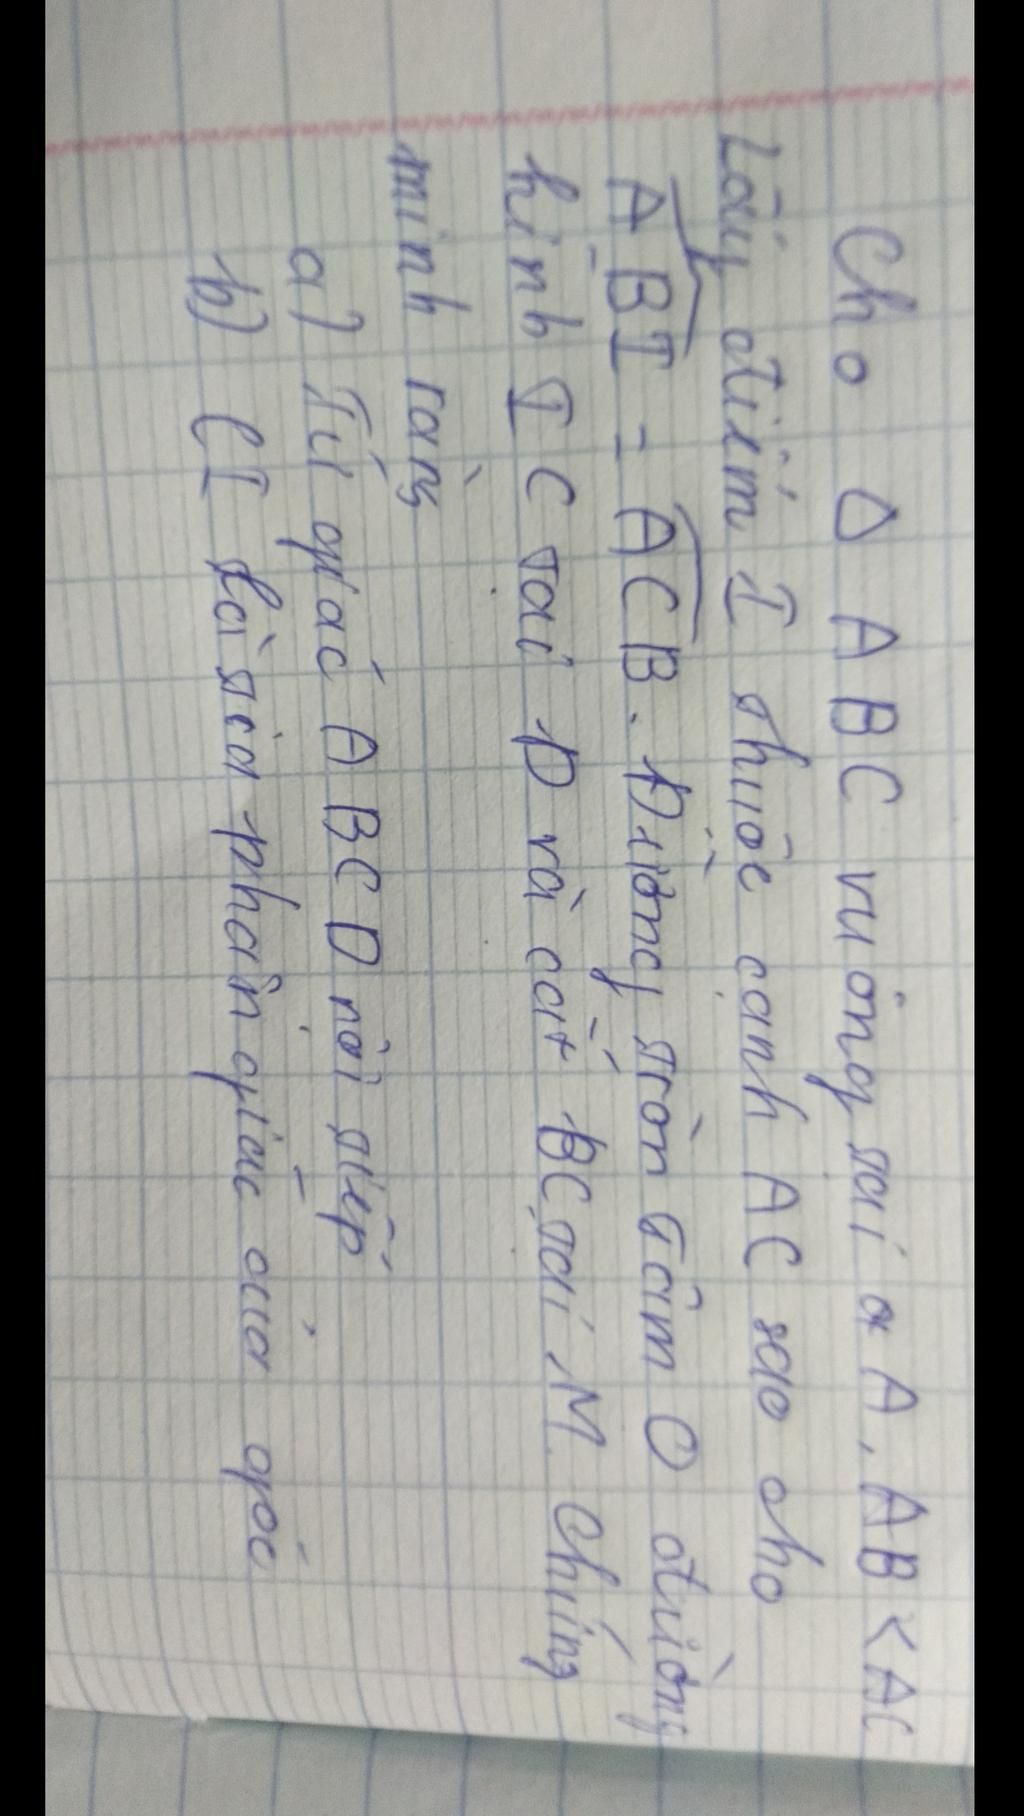 Cho Δ ABC vuông tại A, AB < AC
Lấy điểm I thuộc cạnh AC sao cho
ABI = ACB. Đường tròn tâm O đường
kính IC tại D và cắt BC tại M. Chứng
minh rằng
a) Tứ giác ABCD nội tiếp
b) CI là tia phân giác của góc